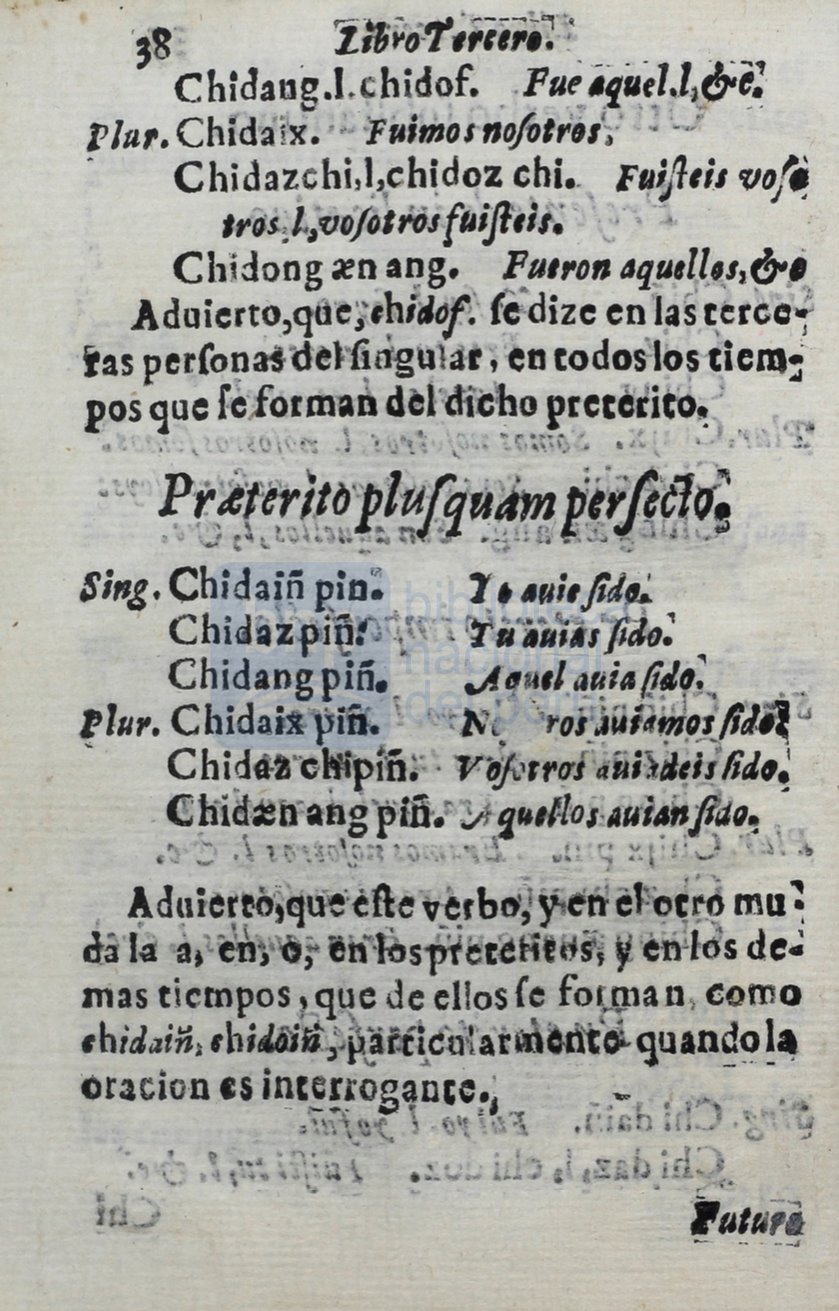 38 Libro Tercero.
Chidang.l.chidof. Fue aquel.l,&c.
Plur. Chidaix. Fuimos nosotros,
Chidazchi,l,chidoz chi. Fuisteis voso
tros,l,vosotros fuisteis.
Chidong æn ang. Fueron aquellos,&c
Aduierto,que,chidof. se dize en las terce-
ras personas del singular, en todos los tiem-
pos que se forman del dicho preterito.
Præterito plusquam perfecto.
Sing. Chidaiñ pin. Yo auie sido.
Chidaz piñ. Tu auias sido.
Chidang piñ. Aquel auia sido.
Plur. Chidaix piñ. N ros auiamos sido.
Chidaz chipiñ. Vosotros auiadeis sido.
Chidæn ang piñ. Aquellos auian sido.
Aduierto,que este verbo, y en el otro mu-
da la a, en, o, en los preteritos, y en los de-
mas tiempos, que de ellos se forman, como
chidaiñ, chidoiñ, particularmente quando la
oracion es interrogante.
Futuro